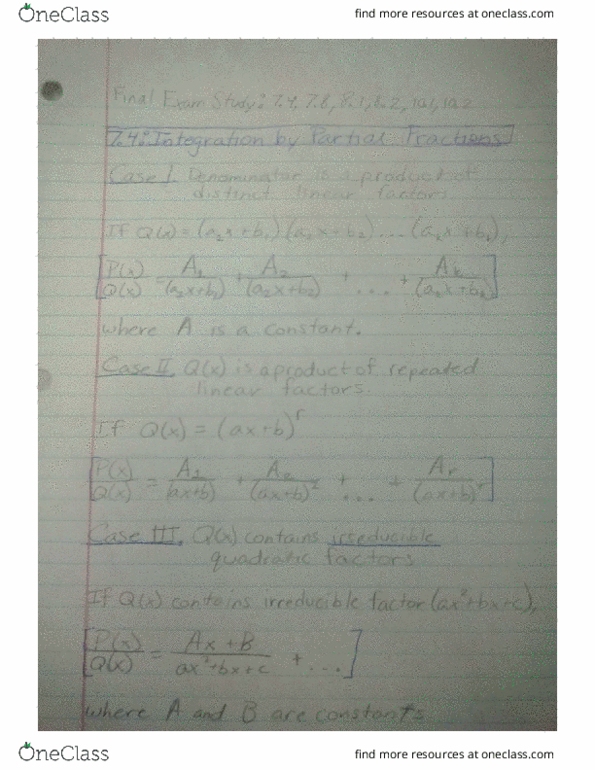 OneClass
find more resources at oneclass.com
Final Exam Study: 7.4, 7.8, 8.1, 8.2, 10.1, 10.2
7.4: Integration by Partial Fractions
Case I. Denominator is a product of
distinct linear factors.
If Q(x) = (a₂x+b₁)(a₂x+b₂)....(a₂x+b₂),
[P(x)/Q(x) = A₁/(a₂x+b₂) + A₂/(a₂x+b₂) + ... + Aₖ/(a₂x+bₖ)]
where A is a constant.
Case II. Q(x) is a product of repeated
linear factors.
If Q(x) = (ax+b)^r
[P(x)/Q(x) = A₁/(ax+b) + A₂/(ax+b)² + ... + Aᵣ/(ax+b)^r]
Case III. Q(x) contains irreducible
quadratic factors
If Q(x) contains irreducible factor (ax²+bx+c),
[P(x)/Q(x) = Ax+B/ax²+bx+c + ...]
where A and B are constants
OneClass
find more resources at oneclass.com